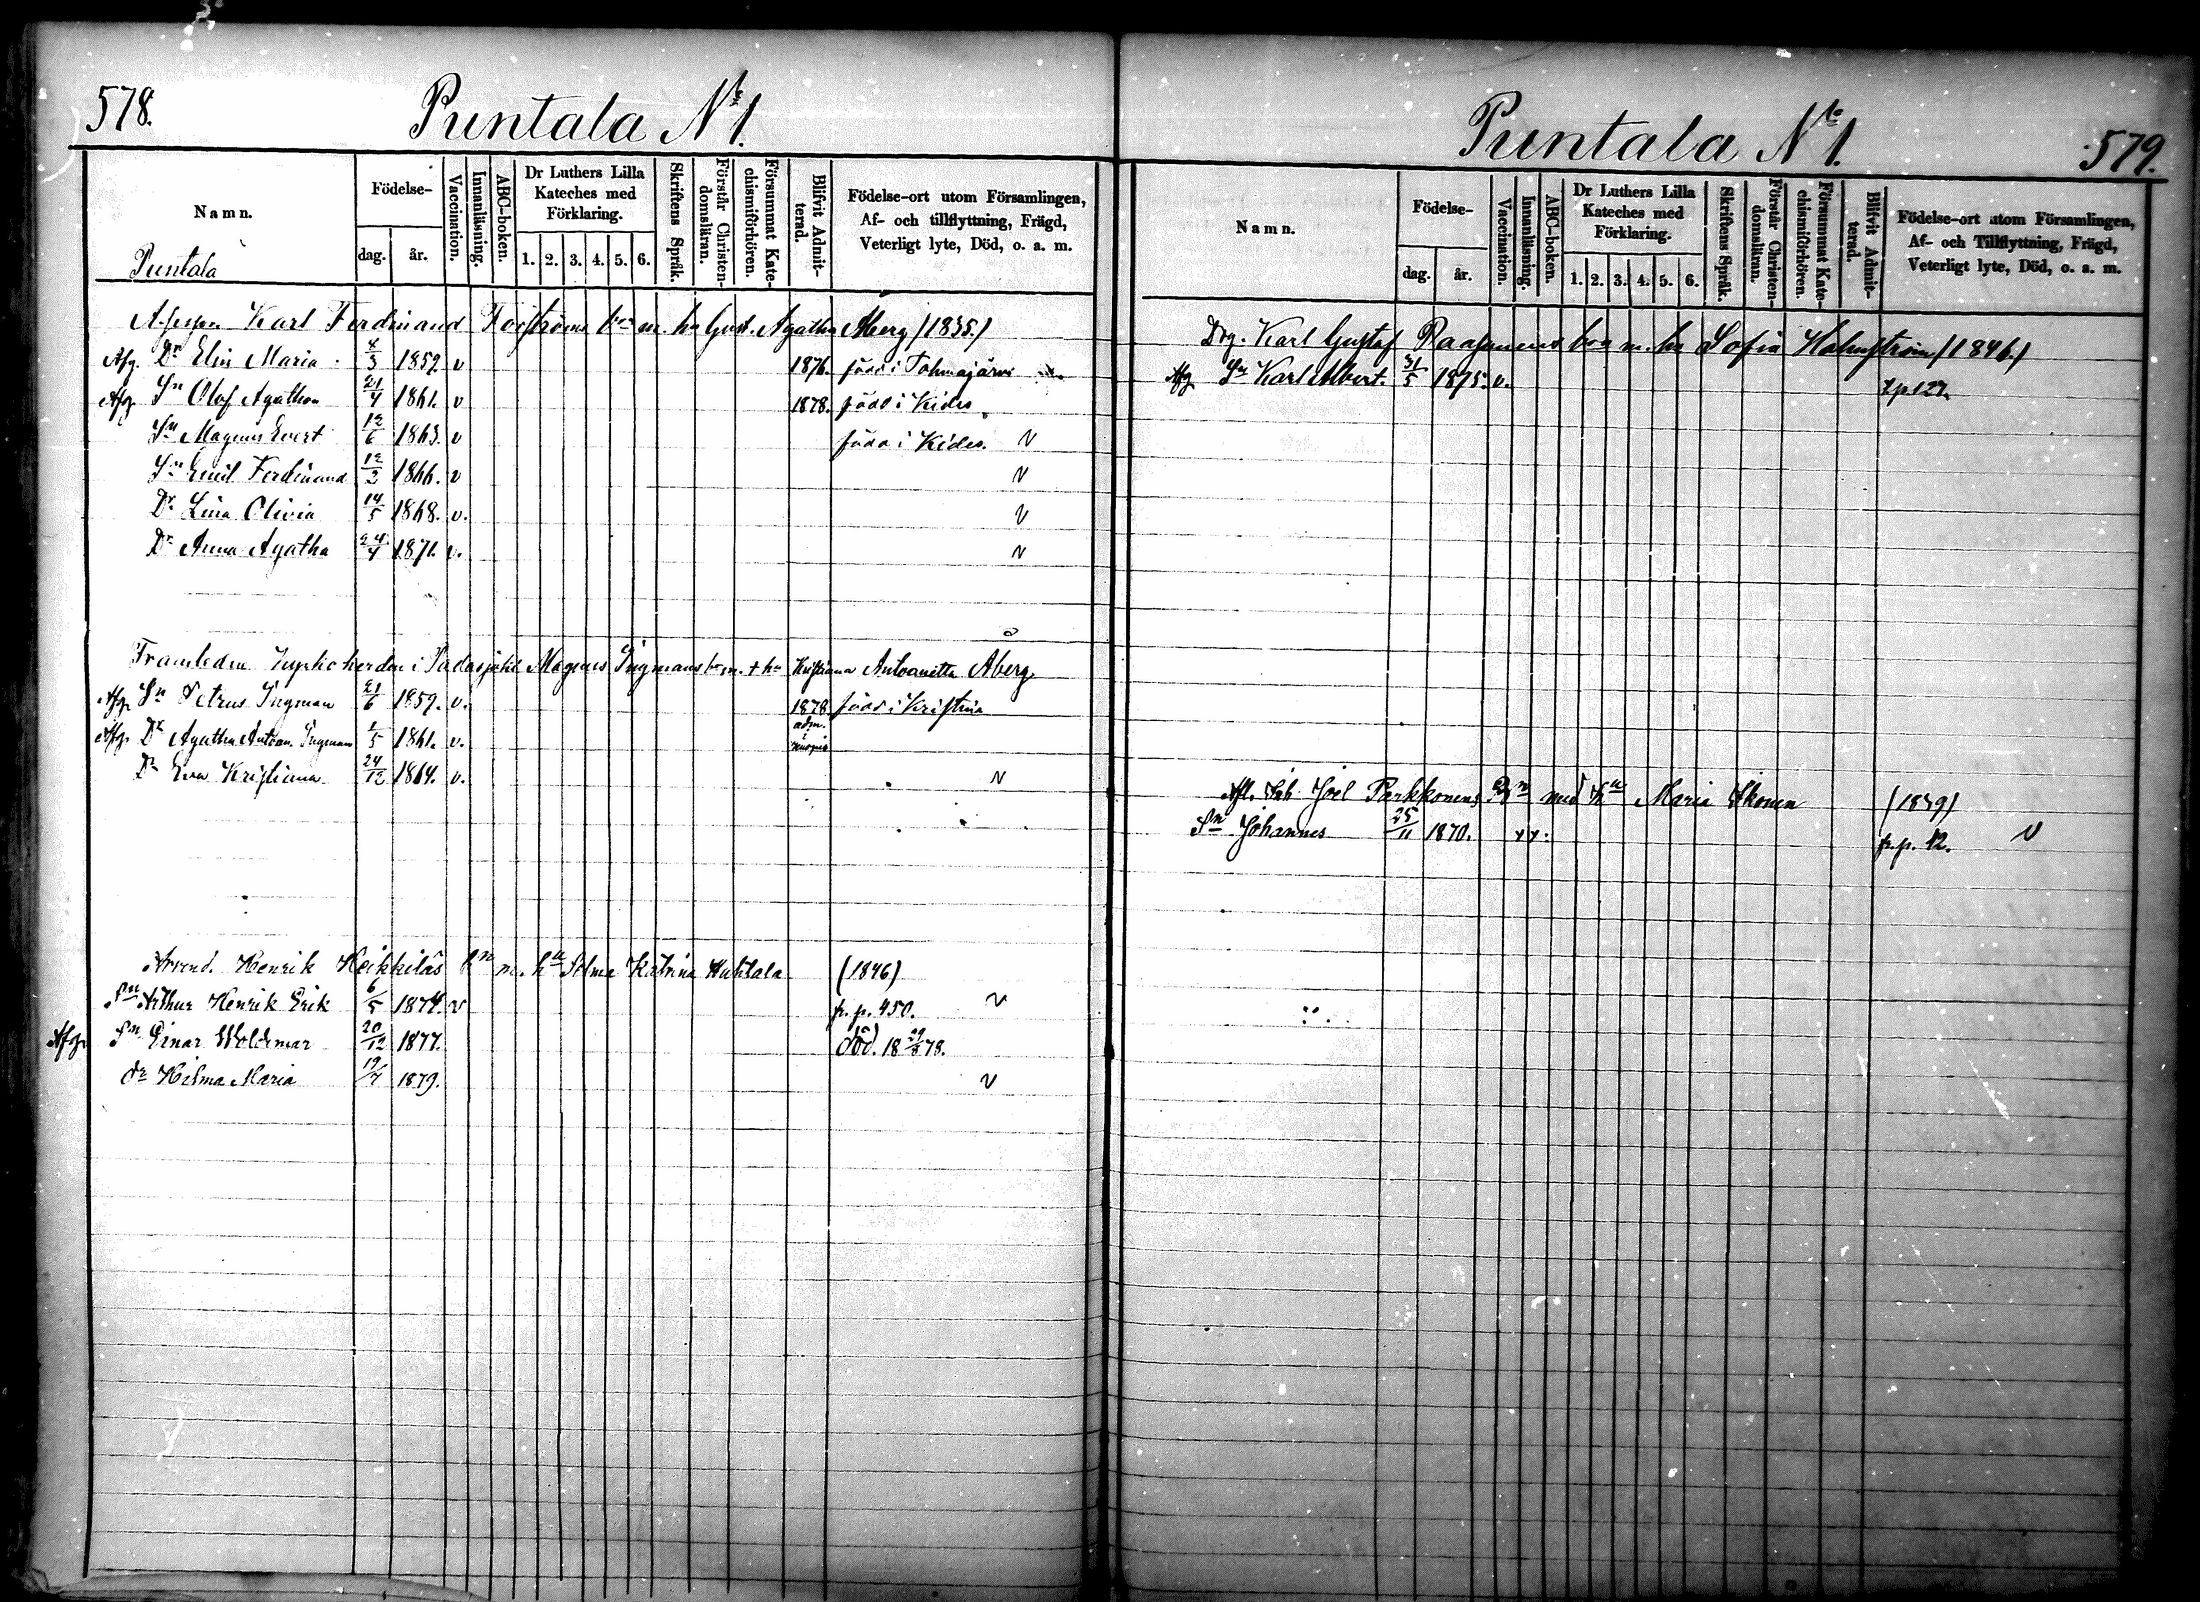 578.
Puntala No 1.
Namn.
Födelse-
dag.
år.
Vaccination.
Innanläsning.
ABC-boken.
Dr Luthers Lilla
Kateches med
Förklaring.
1. 2. 3. 4. 5. 6.
Skriftens Språk.
Förstår Christen-
domsläran.
Försummat Kate-
chismiförhören.
Blifvit Admit-
terad.
Födelse-ort utom Församlingen,
Af- och tillflyttning, Frägd,
Veterligt lyte, Död, o. a. m.
Puntala
Karl Ferdinand Forströms bn m. hu Gust. Agatha Åberg (1835.)
Afg. Dr Elin Maria 4/3 1859. v 1876. född i Tohmajärvi
Afg. Sn Olof Agathon 21/4 1861. v 1878. född i Kides
Sn Magnus Evert 12/6 1863. v född i Kides. v
Sn Emil Ferdinand 12/2 1866. v v
Dr Lina Olivia 14/5 1868. v. v
Dr Anna Agatha 24/4 1871. v. v
Framledne kyrkoherden i Padasjoki Magnus Ingmans bn m. + hu Kristiana Antoanetta Åberg
Afg. Sn Petrus Ingman 21/6 1859. v. 1878 född i Kristina
Afg. Dr Agatha Antoan. Ingman 1/5 1861. v. adm. i Kuopio
Dr Eva Kristiana 24/12 1864. v. v
Arrend. Henrik Heikkiläs bn m. hu Selma Katrina Huhtala (1846)
Sn Arthur Henrik Erik 6/5 1874. v fr. p. 450. v
Afg. Sn Einar Woldemar 20/12 1877. död. 18 29/8 78.
dr Hilma Maria 19/7 1879. v
Puntala No 1.
579.
Namn.
Födelse-
dag.
år.
Vaccination.
Innanläsning.
ABC-boken.
Dr Luthers Lilla
Kateches med
Förklaring.
1. 2. 3. 4. 5. 6.
Skriftens Språk.
Förstår Christen-
domsläran.
Försummat Kate-
chismiförhören.
Blifvit Admit-
terad.
Födelse-ort utom Församlingen,
Af- och Tillflyttning, Frägd,
Veterligt lyte, Död, o. a. m.
Drg. Karl Gustaf Raasunens bn m. hu Sofia Holmström (1846.)
Afg. Sn Karl Albert. 31/5 1875. v. t. p. 127.
Afl. Joel Parkkonens Bn med Hu Maria Ikonen (1839)
Sn Johannes 25/11 1870. v v. fr. p. 12. v